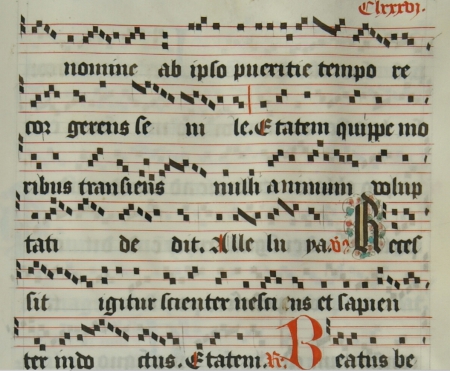 Clxxxvj.
nomine ab ipso pueritie tempo re
cor gerens se ni le. Etatem quippe mo
ribus transiens nulli animum volup
tati de dit. Alle lu ya. V. Reces
sit igitur scienter nesciens et sapien
ter indo ctus. Etatem. R. Beatus be